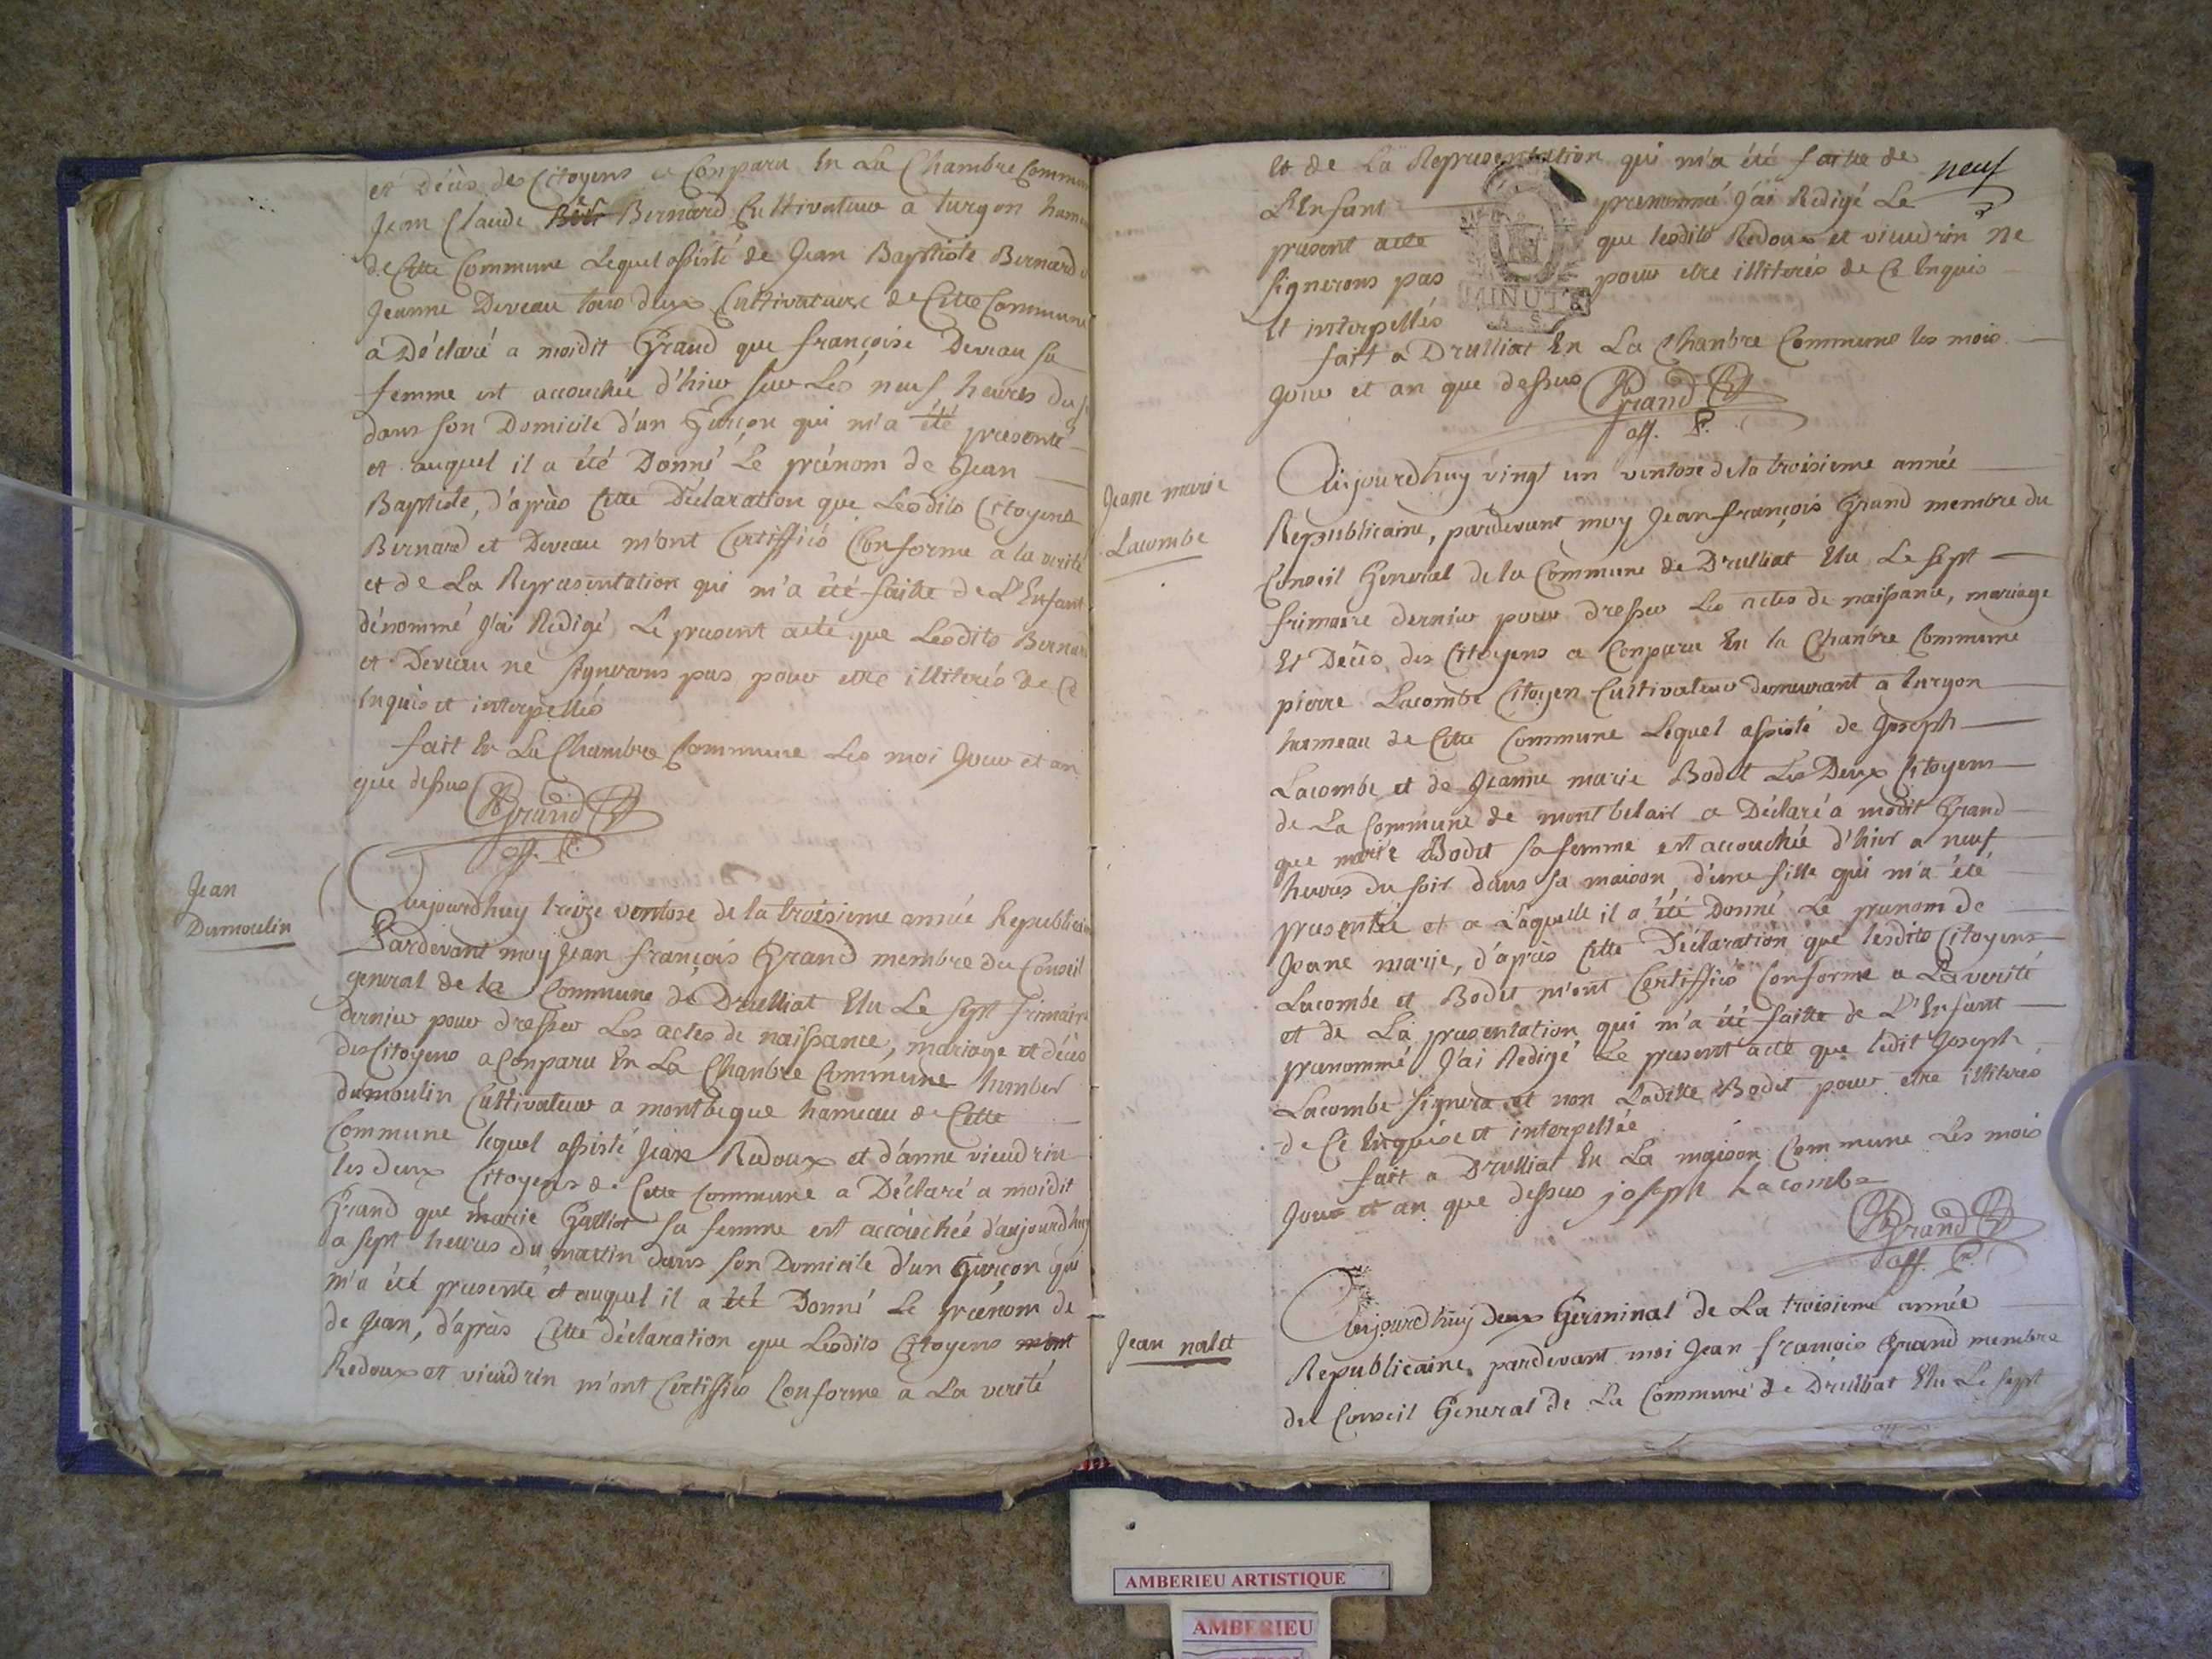 et décès des Citoyens a Conparu En La Chambre Commun
Jean Claude Bernard Cultivateur a turgon ham
de Cette Commune Lequel assisté de Jean Baptiste Bernard
Jeanne Deveau tous deux Cultivateurs de Cette Commune
a Déclaré a moidit Grand que françoise Deveau sa
femme est accouchée d'hier sur Les neuf heures du
dans son Domicile d'un Garçon qui m'a été presenté
et auquel il a été Donné Le prénom de Jean
Baptiste, d'après Cette Déclaration que Lesdits Citoyens
Bernard et Deveau m'ont Certiffiés Conforme a la verité
et de La Representation qui m'a été faitte de L'Enfant
dénommé J'ai Rédigé Le present acte que Lesdits Bernard
et Deveau ne signerons pas pour etre illiterés de Ce
Enquis et interpellés
fait En La Chambre Commune Les moi Jour et an
que dessus Grand
off. P.
Jean
Dumoulin
Aujourdhuy treize ventose de la troisieme année Republicai
Pardevant moy Jean françois Grand membre du Conseil
general de la Commune de Drulliat Elu Le sept frimaire
dernier pour dresser Les actes de naissance, mariage et décès
des Citoyens a Conparu En La Chanbre Commune humber
dumoulin Cultivateur a montbegue hameau de Cette
Commune lequel assisté Jean Redoux et d'anne vieudrin
les deux Citoyens de Cette Commune a Déclaré a moidit
Grand que marie Galliot sa femme est accouchée d'aujourdhuy
a sept heures du mattin dans son Domicile d'un Garçon qui
m'a été presenté et auquel il a été Donné Le prénom de
de Jean, d'après Cette déclaration que Lesdits Citoyens mont
Redoux et vieudrin m'ont Certiffiés Conforme a La verité
et de La Representation qui m'a été faitte de
neuf
L'Enfant prenommé J'ai Redigé Le
present acte que lesdits Redoux et vieudrin ne
signerons pas pour etre illiterés de Ce Enquis
MINUTE
Et interpellés
fait a Drulliat En La Chanbre Commune les mois
Jour et an que dessus Grand
off. P.
Jeane marie
Lacombe
Aujourdhuy vingt un ventose de la troisieme année
Republicaine, pardevant moy Jean françois Grand membre du
Conseil General de la Commune de Drulliat Elu Le sept
frimaire dernier pour dresser Les actes de naissance, mariage
Et Décès des Citoyens a Conparu En la Chanbre Commune
pierre Lacombe Citoyen Cultivateur demeurant a turgon
hameau de Cette Commune Lequel assisté de Joseph
Lacombe et de Jeanne marie Bodet Les Deux Citoyens
de La Commune de mont belair a Déclaré a moidit Grand
que marie Bodet sa femme est accouchée d'hier a neuf
heures du soir dans sa maison d'une fille qui m'a été
presentée et a Laquelle il a été Donné Le prenom de
Jeane marie, d'après Cette Déclaration que lesdits Citoyens
Lacombe et Bodet m'ont Certiffiés Conforme a La verité
et de La presentation qui m'a été faitte de L'Enfant
prenommé J'ai Redigé Le present acte que ledit Joseph
Lacombe signera et non Ladite Bodet pour etre illiterés
de Ce Enquise et interpellée
fait a Drulliat En La maison Commune Les mois
Jour et an que dessus joseph Lacombe
Grand
off. P.
Jean nalet
Aujourdhuy deux Germinal de La troisieme année
Republicaine, pardevant moi Jean francois Grand membre
du Conseil General de La Commune de Drulliat Elu Le sept
AMBERIEU ARTISTIQUE
AMBERIEU